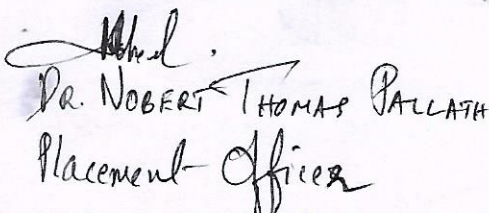 Dr. Nobert Thomas Pallath
Placement Officer